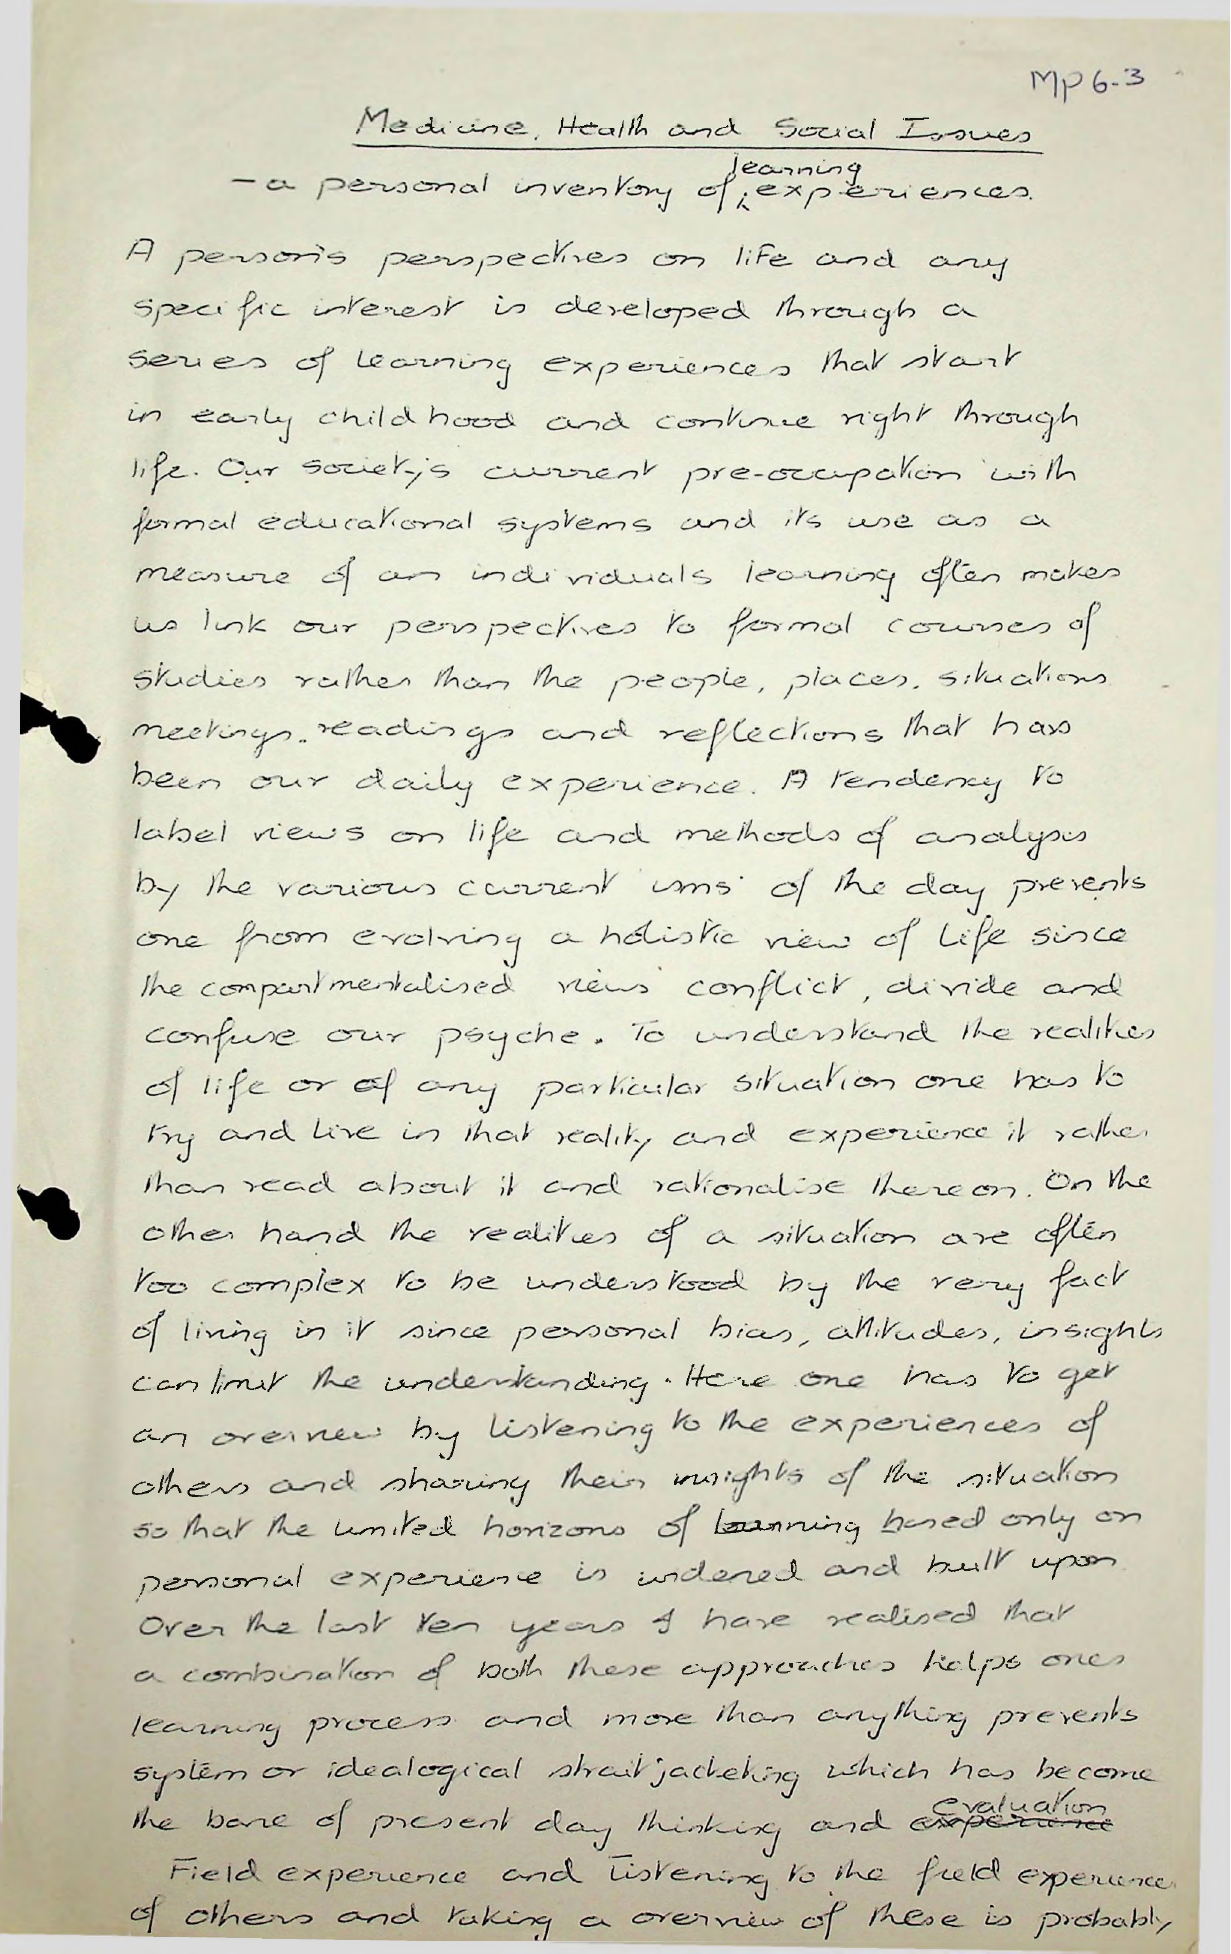 MP 6.3
Medicine, Health and Social Issues
learning
- a personal inventory of experiences.
A person's perspectives on life and any
specific interest is developed through a
series of learning experiences that start
in early childhood and continue right through
life. Our society's current pre-occupation with
formal educational systems and its use as a
measure of an individuals learning often makes
us link our perspectives to formal courses of
studies rather than the people, places, situations
meetings, readings and reflections that has
been our daily experience. A tendency to
label views on life and methods of analysis
by the various current 'isms' of the day prevents
one from evolving a holistic view of life since
the compartmentalised views conflict, divide and
confuse our psyche. To understand the realities
of life or of any particular situation one has to
try and live in that reality and experience it rather
than read about it and rationalise thereon. On the
other hand the realities of a situation are often
too complex to be understood by the very fact
of living in it since personal bias, attitudes, insights
can limit the understanding. Here one has to get
an overview by listening to the experiences of
others and sharing their insights of the situation
so that the limited horizons of learning based only on
personal experience is widened and built upon
Over the last ten years I have realised that
a combination of both these approaches helps ones
learning process and more than anything prevents
system or idealogical strait jacketing which has become
evaluation
the bane of present day thinking and experience
Field experience and listening to the field experience
of others and taking a overview of these is probably